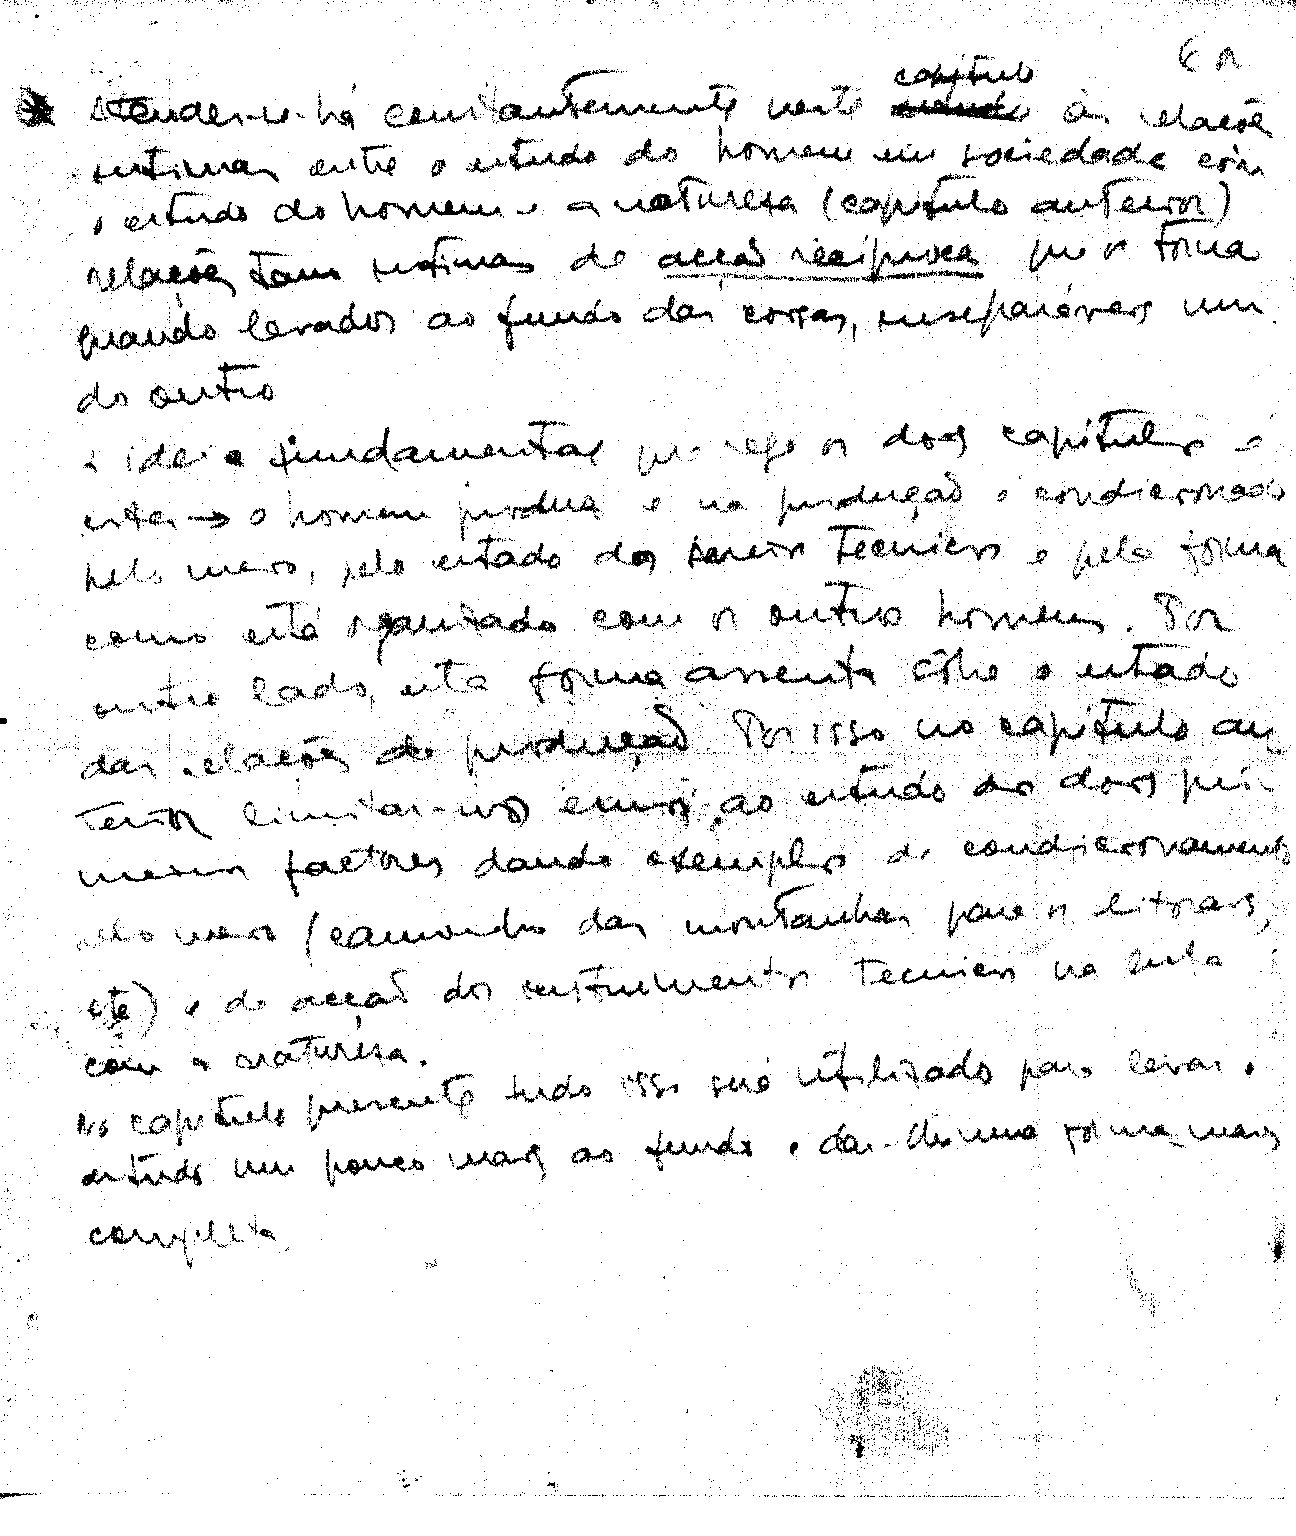 6 A
capítulo
Atender-se-há constantemente neste às relações
intimas entre o estudo do homem em sociedade com
o estudo do homem e a naturesa (capítulo anterior)
relações tam intimas de acção recíproca que os torna
quando levados ao fundo das coisas, inseparáveis um
do outro
A ideia fundamental que rege os dois capítulos é
esta → o homem produz e na produção é condicionado
pelo meio, pelo estado dos meios tecnicos e pela forma
como está organizado com os outros homens. Por
outro lado, esta forma assenta sôbre o estado
das relações de produção. Por isso no capítulo an
terior limitar-nos-emos ao estudo dos dois pri-
meiros factores dando exemplos de condicionamento
pelo meio (caminho das montanhas para os litorais,
etc) e de acção dos instrumentos tecnicos na luta
com a naturêsa.
No capitulo presente tudo isso será utilizado para levar o
estudo um pouco mais ao fundo e dar-lhe uma forma mais
completa